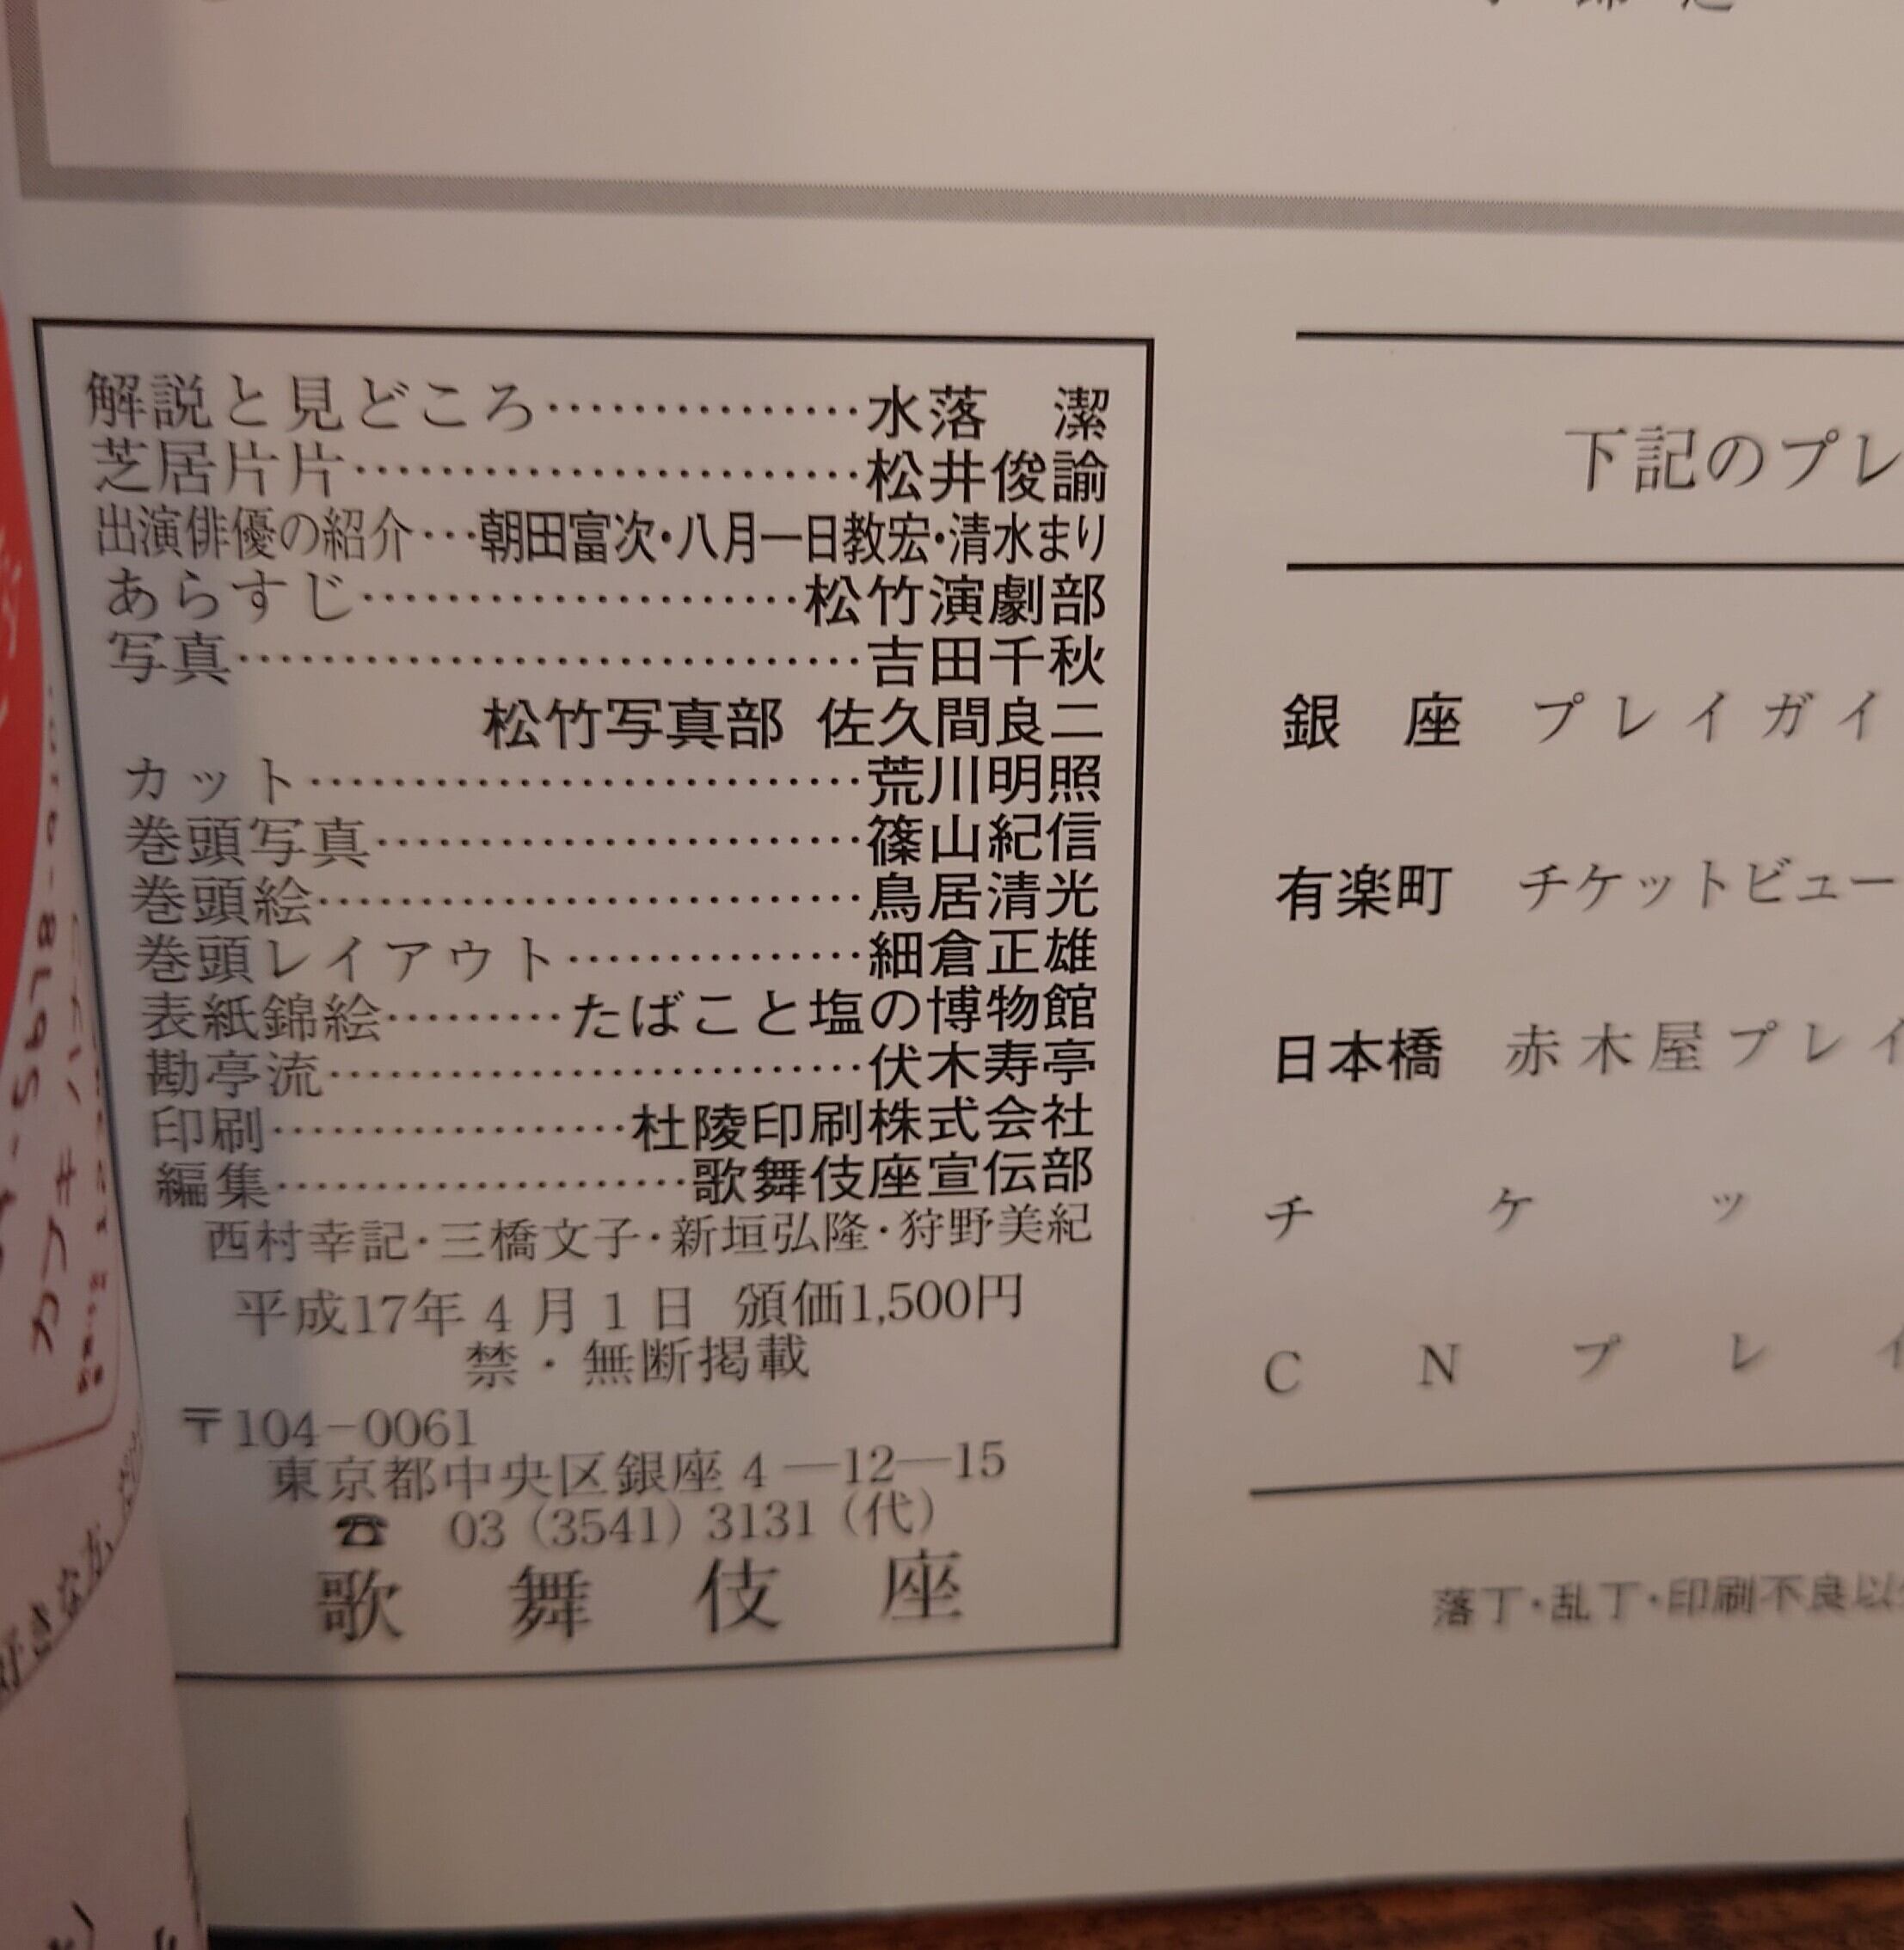 解説と見どころ……………水落　潔
芝居片片……………………松井俊諭
出演俳優の紹介…朝田富次・八月一日教宏・清水まり
あらすじ…………………松竹演劇部
写真…………………………吉田千秋
松竹写真部 佐久間良二
カット………………………荒川明照
巻頭写真……………………篠山紀信
巻頭絵………………………鳥居清光
巻頭レイアウト……………細倉正雄
表紙錦絵………たばこと塩の博物館
勘亭流………………………伏木寿亭
印刷………………杜陵印刷株式会社
編集…………………歌舞伎座宣伝部
西村幸記・三橋文子・新垣弘隆・狩野美紀
平成17年4月1日 頒価1,500円
禁・無断掲載
〒104-0061
東京都中央区銀座4―12―15
☎ 03（3541）3131（代）
歌舞伎座
下記のプレ
銀座 プレイガイ
有楽町 チケットビュー
日本橋 赤木屋プレイ
チケッ
CNプレイ
落丁・乱丁・印刷不良以